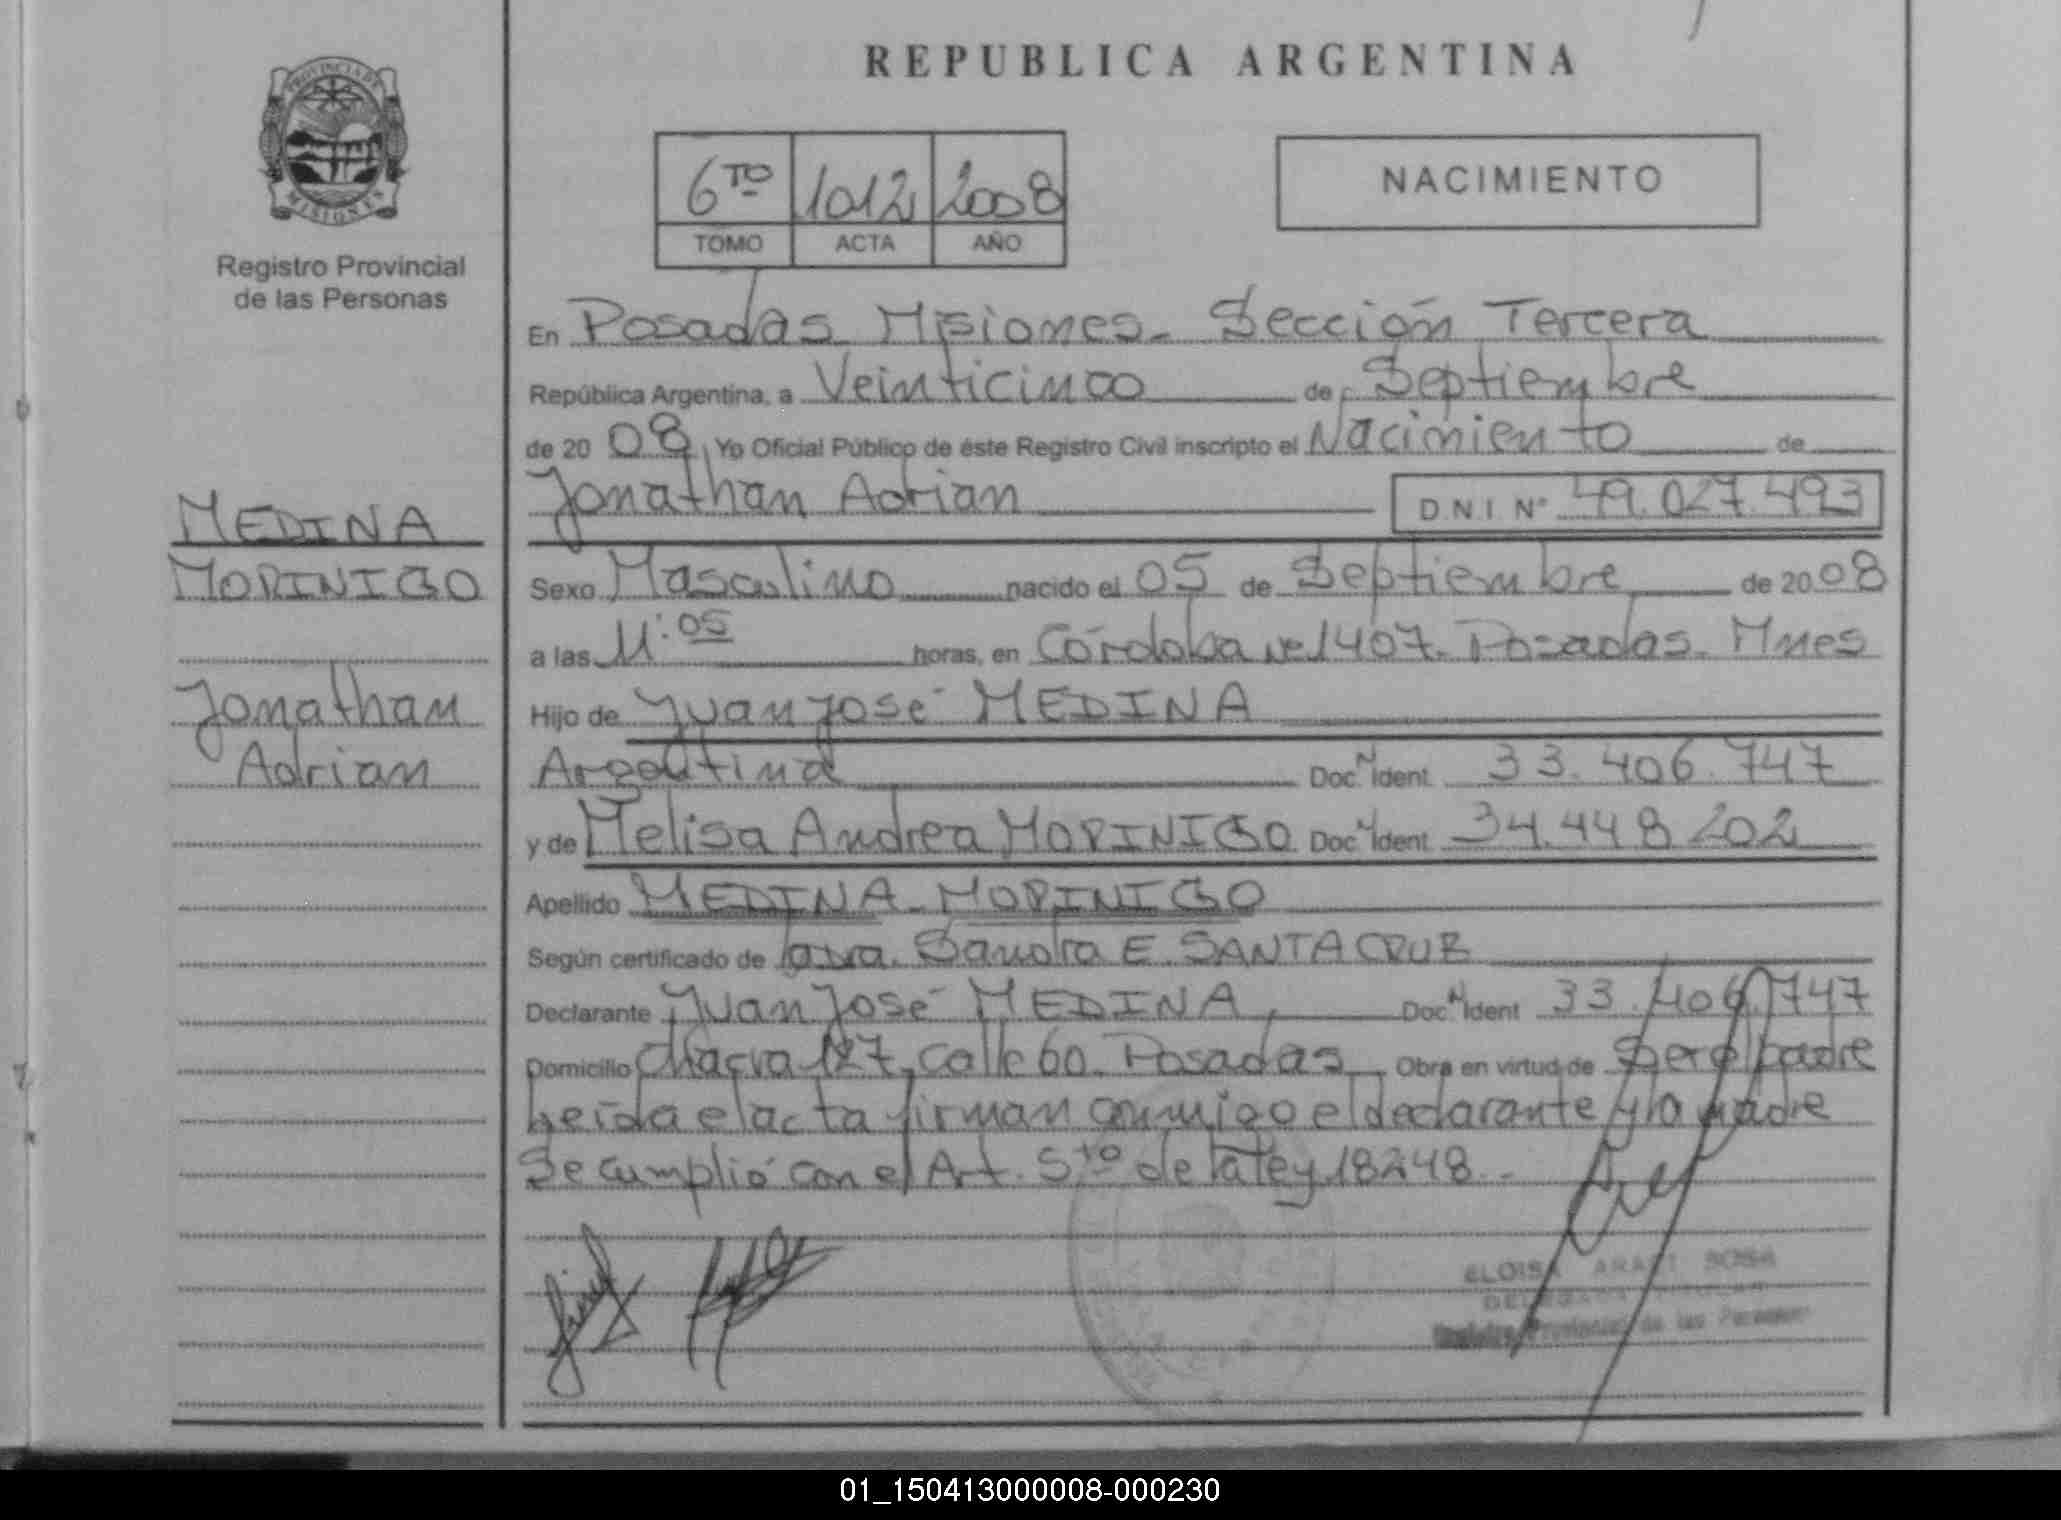 REPUBLICA ARGENTINA
PROVINCIA DE
MISIONES
Registro Provincial
de las Personas
6TO 1012 2008
TOMO ACTA AÑO
NACIMIENTO
En Posadas Misiones. Sección Tercera
República Argentina, a Veinticinco de Septiembre
de 20 08 Yo Oficial Público de éste Registro Civil inscripto el Nacimiento de
Jonathan Adrian D.N.I. Nº 49.027.493
MEDINA
MORINIGO
Jonathan
Adrian
Sexo Masculino nacido el 05 de Septiembre de 20 08
a las 11:05 horas, en Córdoba Nº 1407. Posadas. Mnes
Hijo de Juan José MEDINA
Argentina Doc. Ident. 33.406.747
y de Melisa Andrea MORINIGO Doc. Ident. 34.448.202
Apellido MEDINA MORINIGO
Según certificado de Sandra E. SANTA CRUZ
Declarante Juan José MEDINA Doc. Ident 33.406.747
Domicilio Chacra 127, Calle 60. Posadas Obra en virtud de Ser el padre
Leída el acta firman conmigo el declarante y la madre
Se cumplió con el Art. 5to de la ley 18248.-
ELOISA ARASI SOSA
Registro Provincial de las Personas
01_150413000008-000230